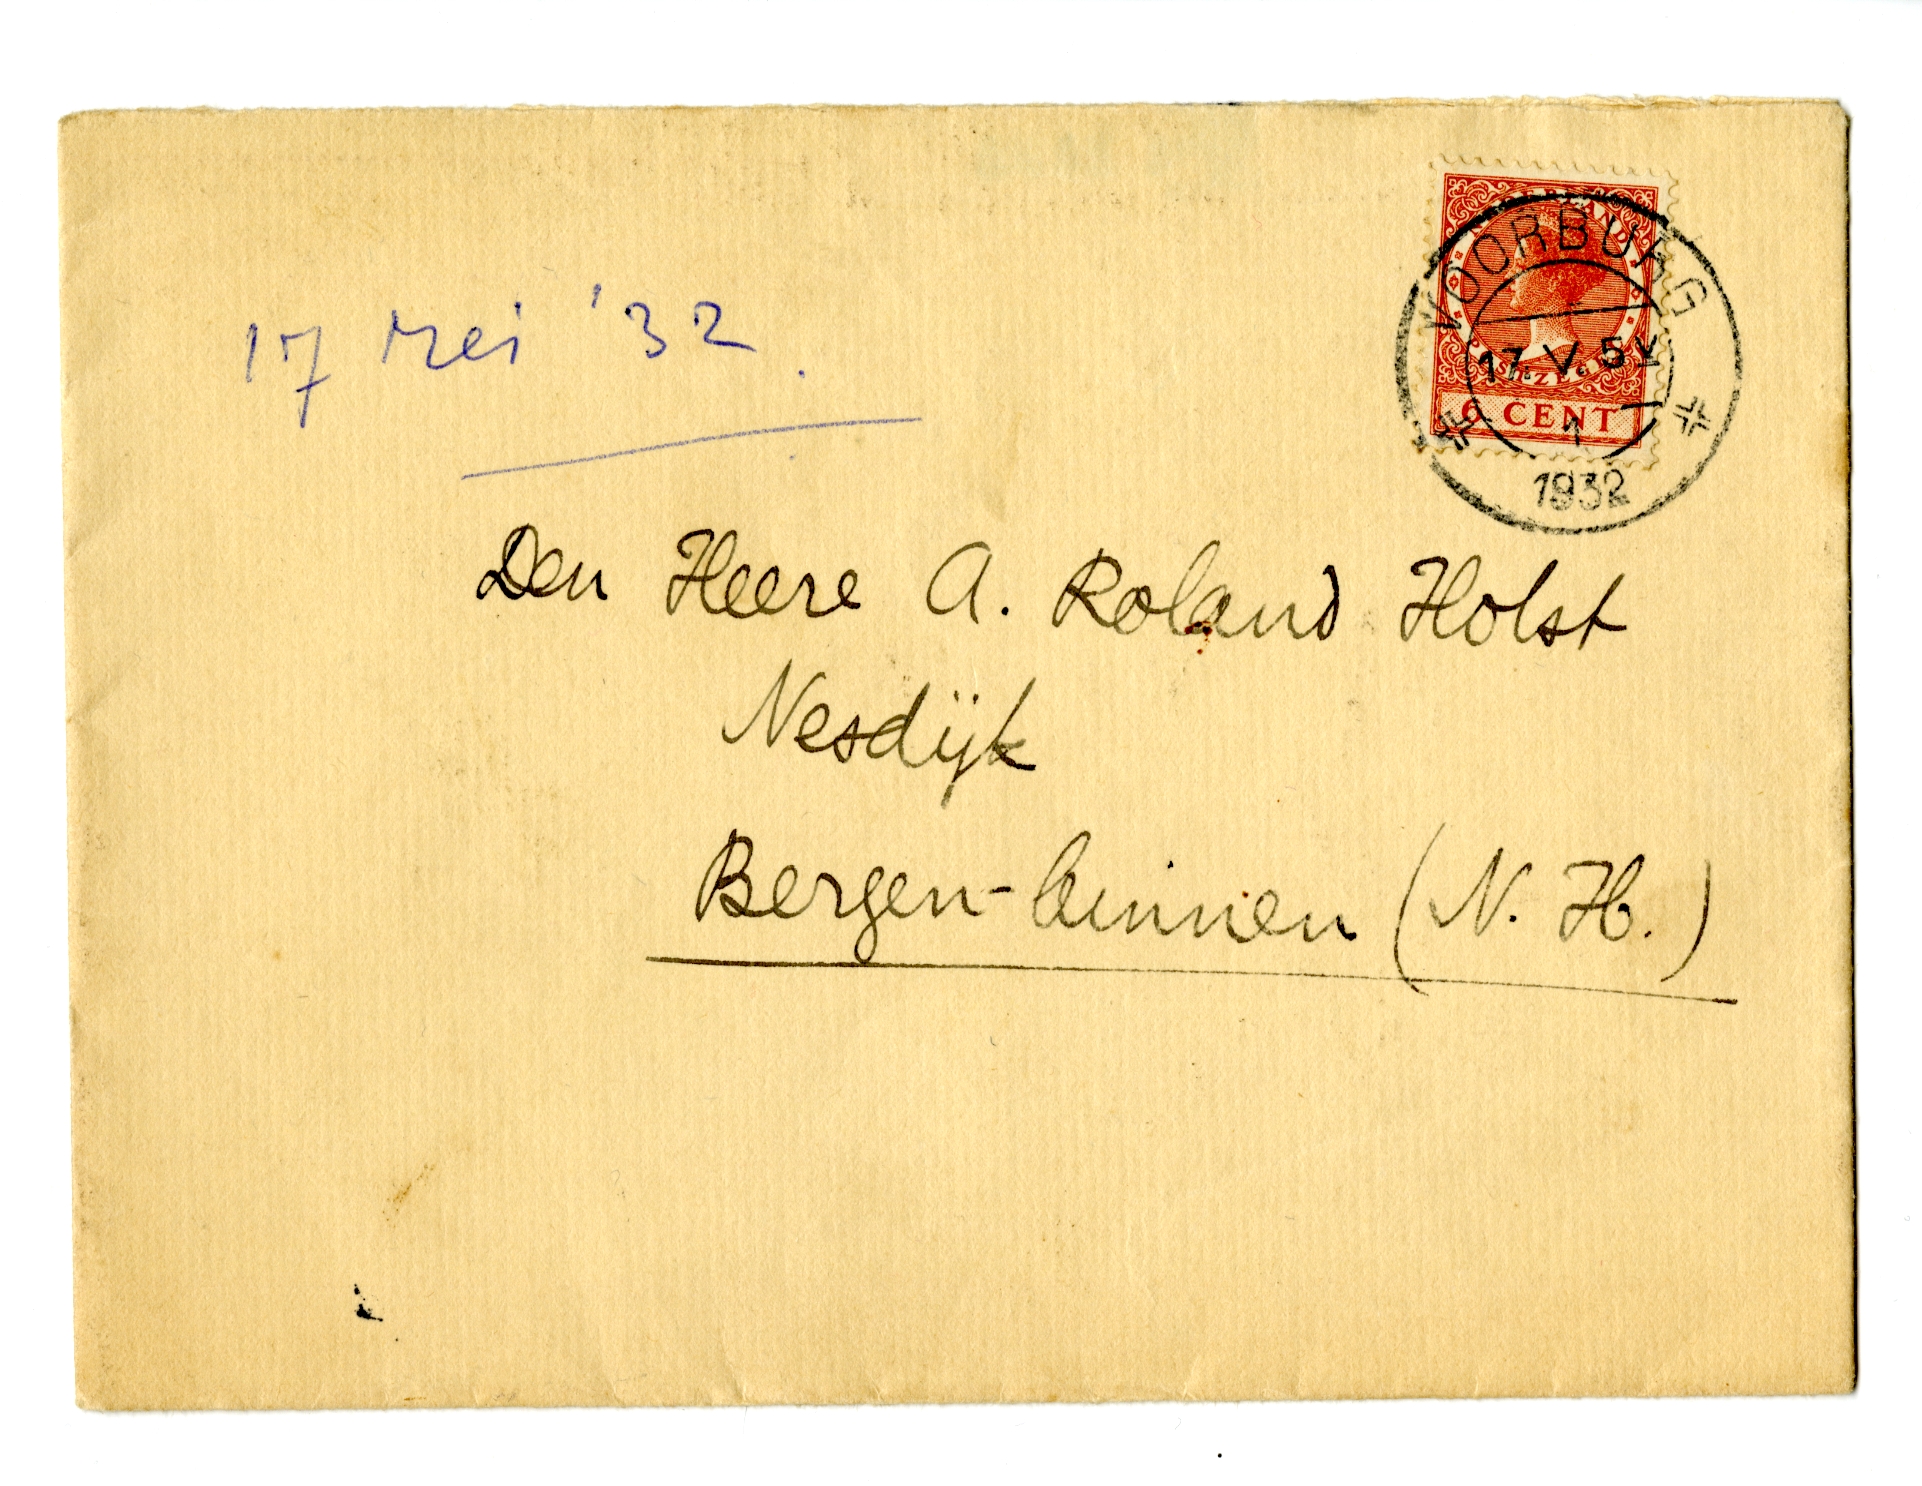 17 Mei '32.
NEDERLAND
POSTZEGEL
6 CENT
VOORBURG
17. V. 5
1
1932
Den Heere A. Roland Holst
Nesdijk
Bergen-binnen (N. H.)